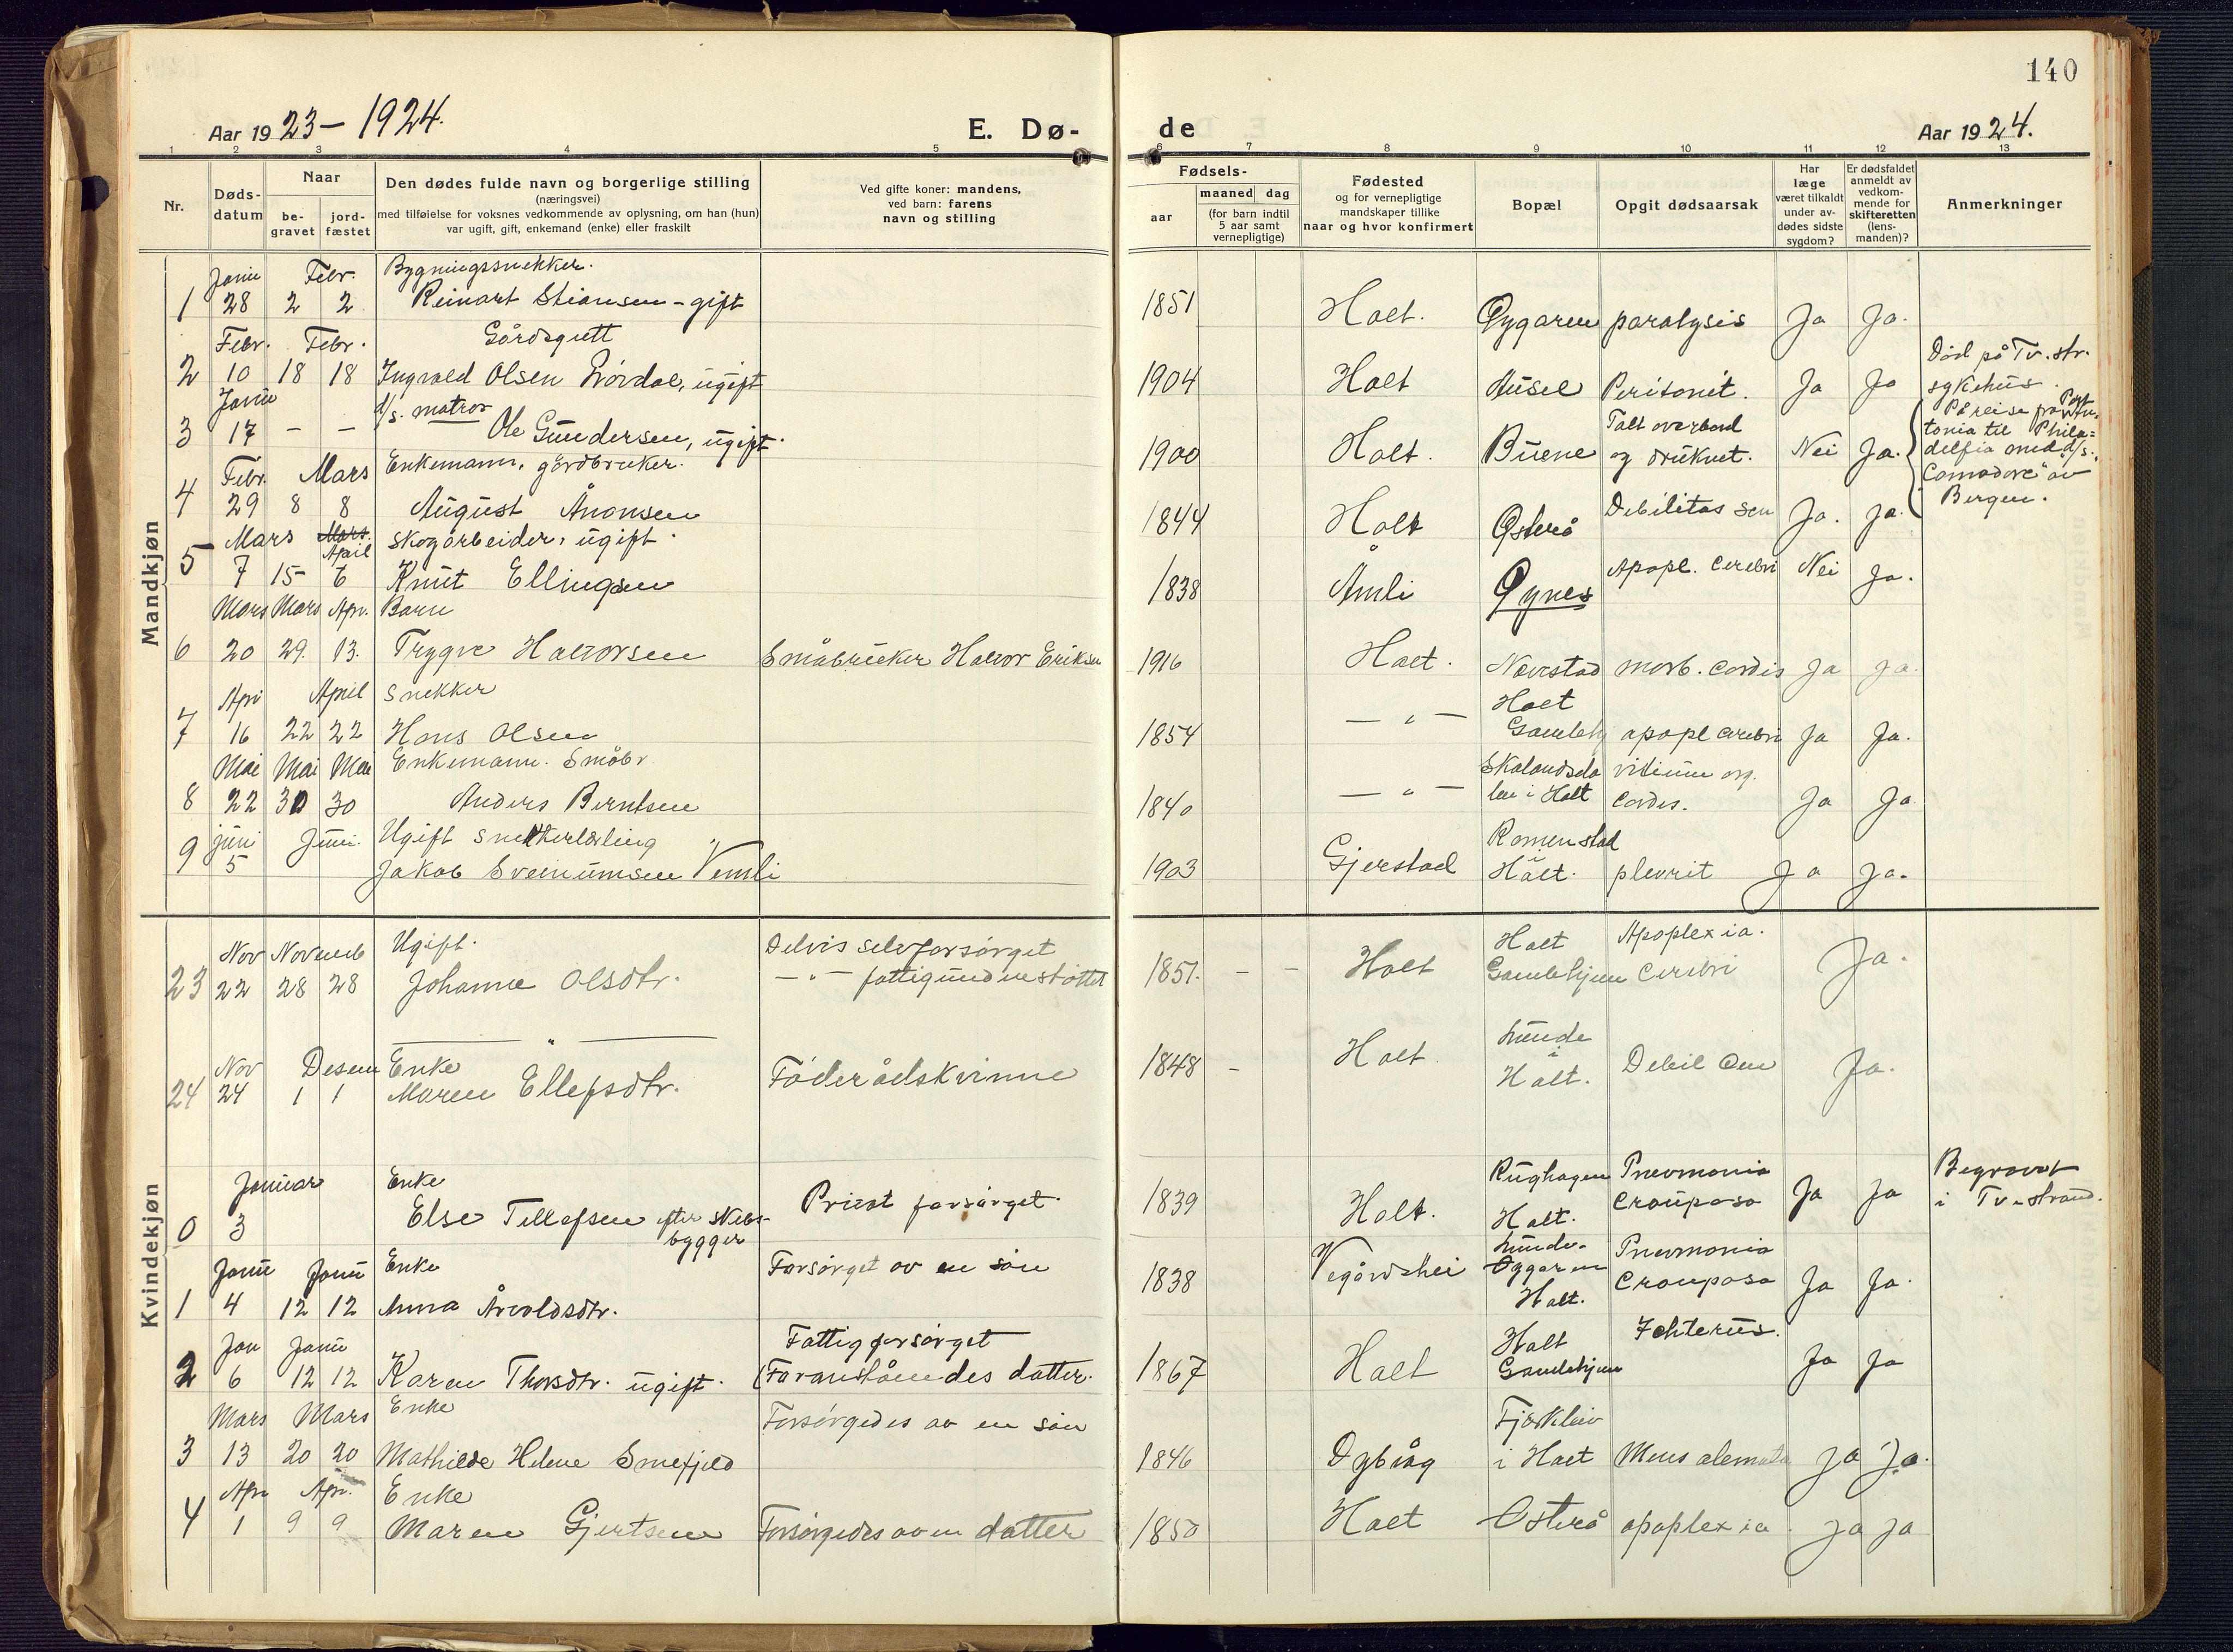 140
Aar 1923 – 1924.
E. Dø-
de
Aar 1924.
1 2 3 4 5 6 7 8 9 10 11 12 13
Nr.
Døds-
datum
Naar
be-
gravet
jord-
fæstet
Den dødes fulde navn og borgerlige stilling
(næringsvei)
med tilføielse for voksnes vedkommende av oplysning, om han (hun)
var ugift, gift, enkemand (enke) eller fraskilt
Ved gifte koner: mandens,
ved barn: farens
navn og stilling
Fødsels-
aar
maaned dag
(for barn indtil
5 aar samt
vernepligtige)
Fødested
og for vernepligtige
mandskaper tillike
naar og hvor konfirmert
Bopæl
Opgit dødsaarsak
Har
læge
været tilkaldt
under av-
dødes sidste
sygdom?
Er dødsfaldet
anmeldt av
vedkom-
mende for
skifteretten
(lens-
manden)?
Anmerkninger
Mandkjøn
Janu Febr. Bygningssnekker.
1 28 2 2 Reinart Stiansen - gift 1851 Holt. paralysis Ja Ja.
Febr. Febr. Gårdsgutt
2 10 18 18 Ingvald Olsen ugift 1904 Holt Peritonit. Ja Ja
Død på Tv.str.
sykehus.
Janu d/s. matros
3 17 – – Ole Gundersen, ugift. 1900 Holt. Falt overbord
og druknet. Nei Ja.
På reise fra
tonia til Phila=
delfia med d/s.
"Comodore" av
Bergen.
Febr. Mars Enkemann, gårdbruker.
4 29 8 8 August Ånonsen 1844 Holt Østerå Debilitas sen Ja. Ja.
Mars Mars. April skogarbeider, ugift.
5 7 15 6 Knut Ellingsen 1838 Åmli Øynes Apopl. cerebri Nei Ja.
Mars Mars Apr. Barn
6 20 29. 13. Trygve Halvorsen Småbruker Halvor Eriksen 1916 Holt. Næverstad morb. cordis Ja Ja.
Apr April snekker Holt
7 16 22 22 Hans Olsen 1854 – " – Gamlehj apopl cerebri Ja Ja.
Mai Mai Mai Enkemann. Småbr Skalandsda vitium org.
8 22 30 30 Anders Berntsen 1840 – " – len i Holt Cordis. Ja Ja
juni Juni. Ugift snekkerlærling Romenstad
9 5 Jakob Sveinumsen Vemli 1903 Gjerstad i Holt. plevrit Ja Ja.
Kvindekjøn
Nov Novemb Ugift. Delvis selvforsørget Holt Apoplexia.
23 22 28 28 Johanne Olsdtr. – " – fattigunderstøttet 1851. – – Holt Gamlehjem Cerebri Ja.
— " —
Nov Desem Enke Lunde
24 24 1 1 Maren Ellefsdtr. Føderådskvinne 1848 – Holt i Holt. Debil sen Ja.
Januar Enke Rughagen Pnevmonia Begravet
0 3 Else Tellefsen efter skibs-
bygger Privat forsørget. 1839 Holt. Holt. Crouposa Ja Ja i Tv.strand.
Janu Janu Enke Forsørget av en søn Lunde- Pnevmonia
1 4 12 12 Anna Årvoldsdtr. 1838 Vegårdshei Holt. Crouposa Ja Ja.
Jan Janu Fattigforsørget Holt Ichterus.
2 6 12 12 Karen Thorsdtr. ugift. (Foranståendes datter. 1867 Holt Gamlehjem Ja Ja
Mars Mars Enke Forsørgedes av en søn Fjærkleiv
3 13 20 20 Mathilde Helene Smefjeld 1846 Dybvåg i Holt Mens Ja Ja.
Apr Apr. Enke
4 1 9 9 Maren Gjertsen Forsørgedes av en datter 1850 Holt Østerå apoplexia. Ja Ja